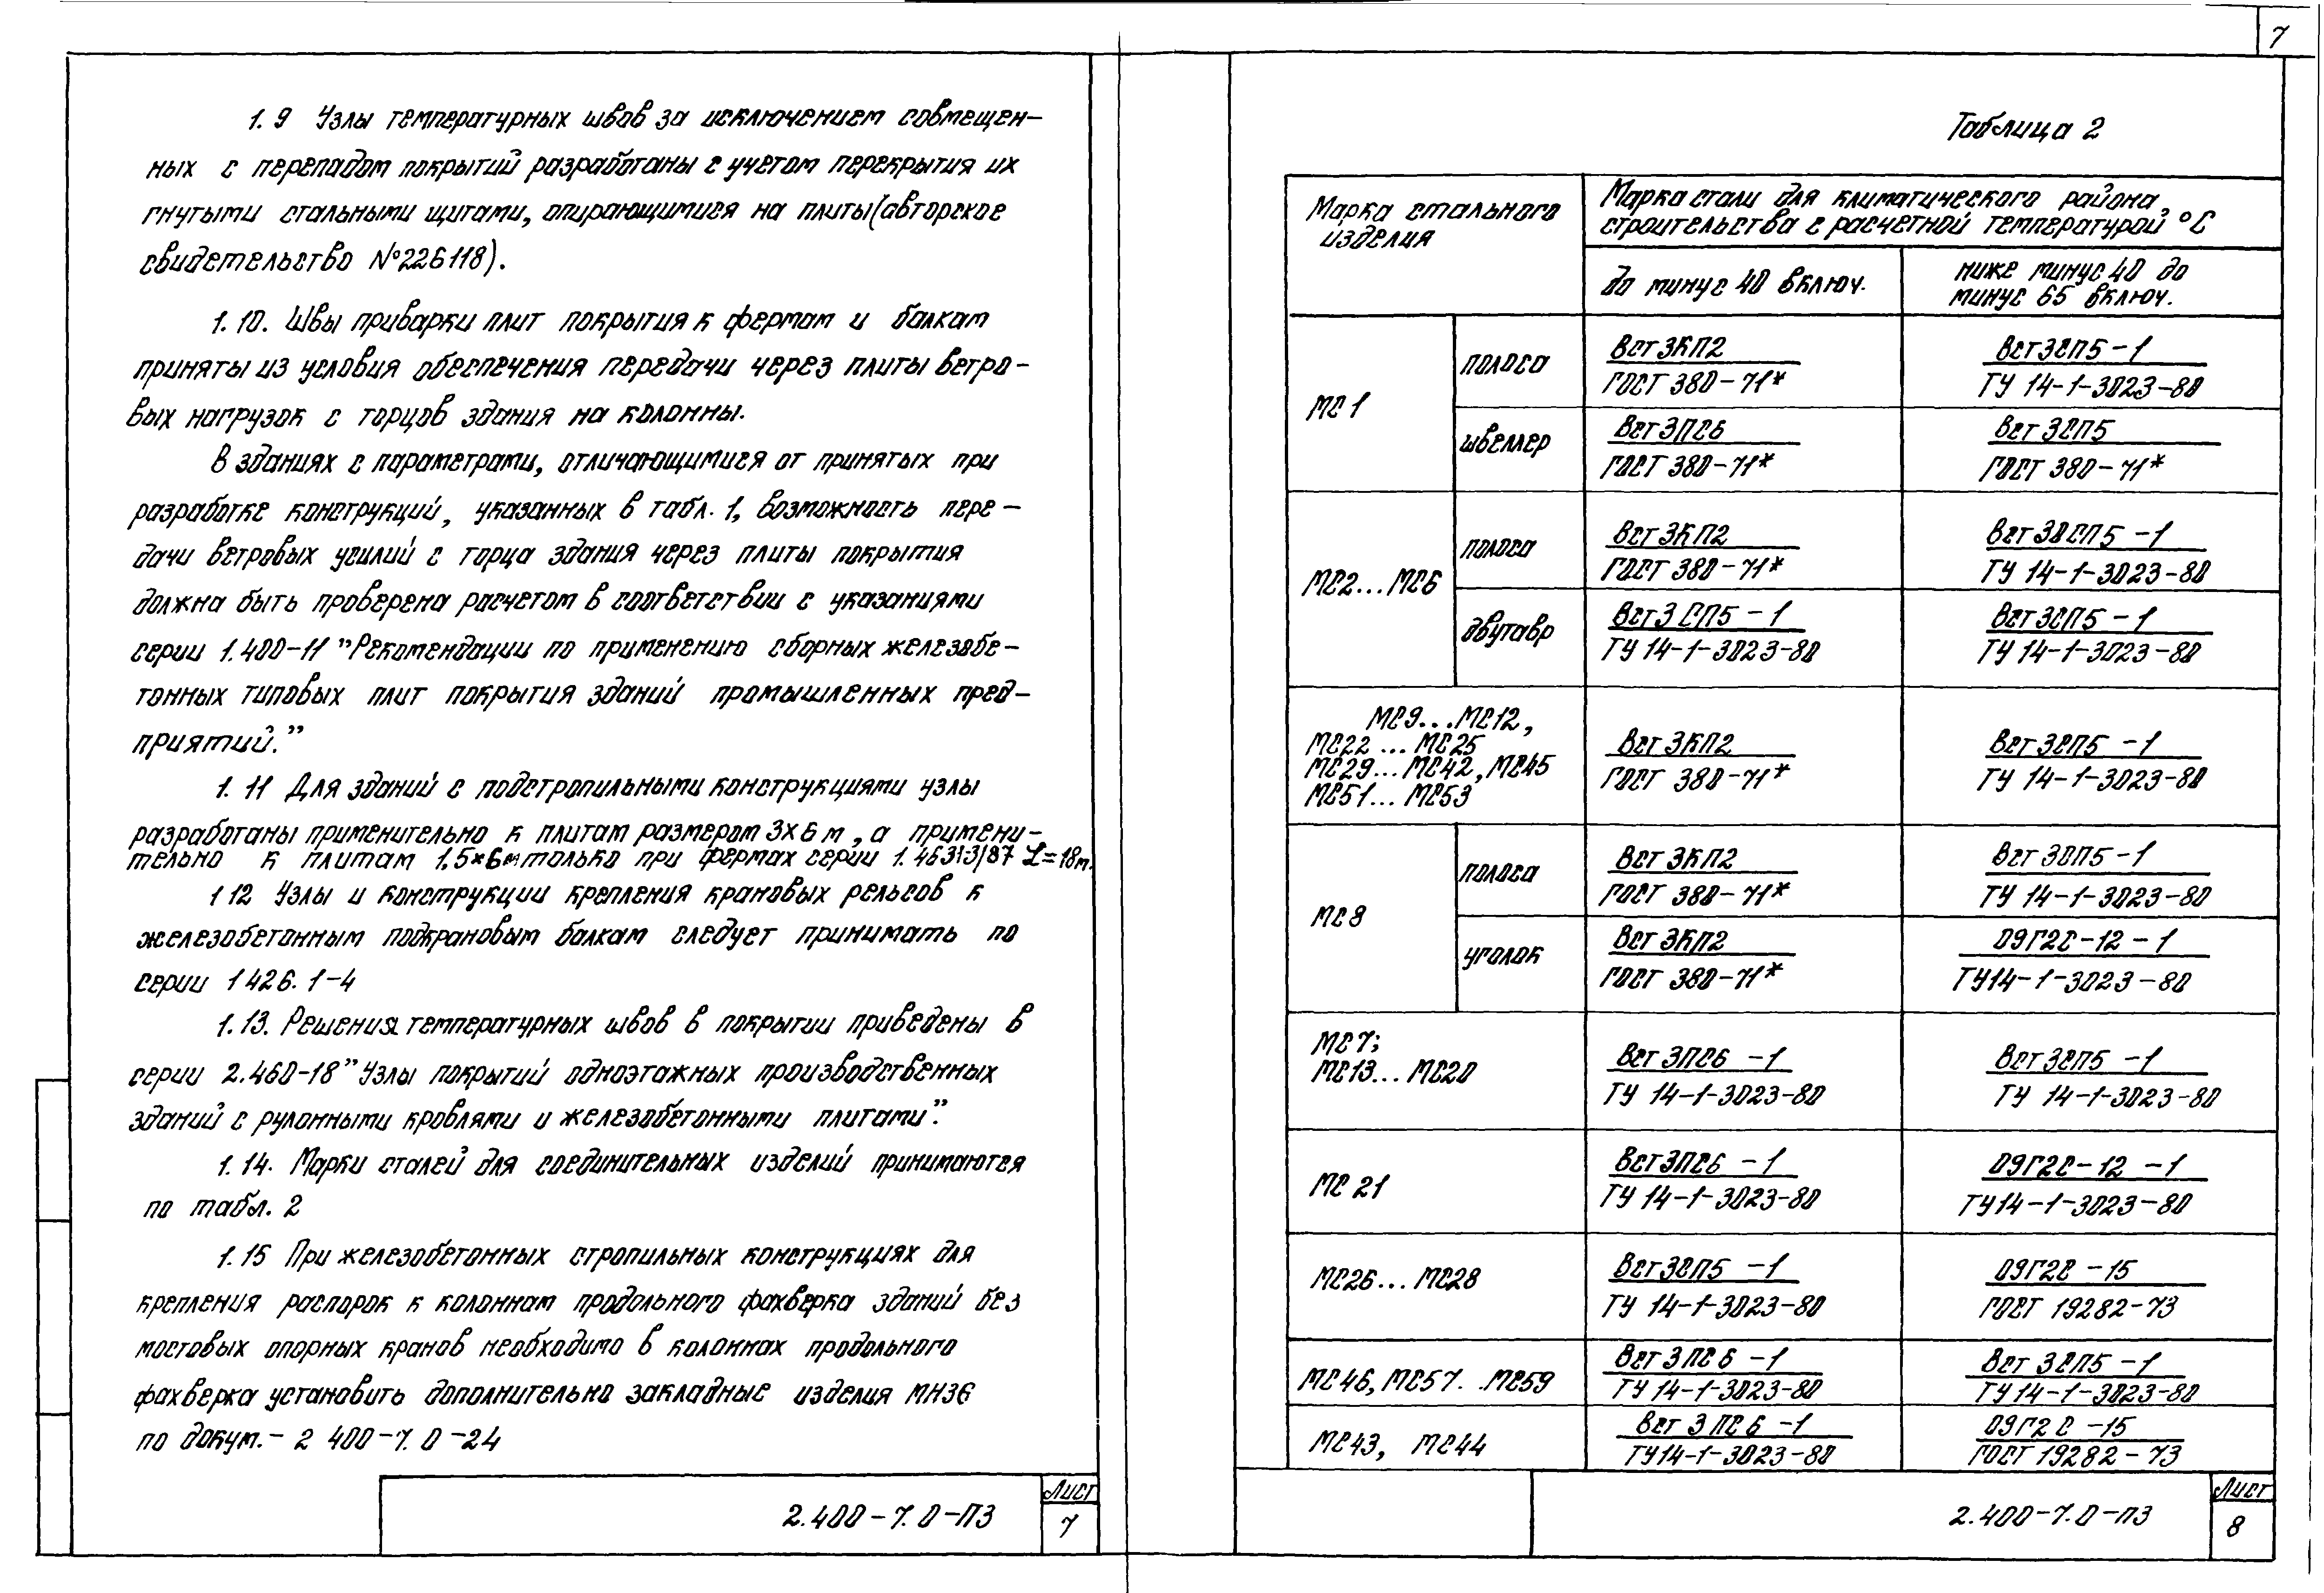 7
1.9 Узлы температурных швов за исключением совмещен-
ных с перепадом покрытий разработаны с учетом перекрытия их
гнутыми стальными щитами, опирающимися на плиты (авторское
свидетельство №226118).
1.10. Швы приварки плит покрытия к фермам и балкам
приняты из условия обеспечения передачи через плиты ветро-
вых нагрузок с торцов здания на колонны.
В зданиях с параметрами, отличающимися от принятых при
разработке конструкций, указанных в табл. 1, возможность пере-
дачи ветровых усилий с торца здания через плиты покрытия
должна быть проверена расчетом в соответствии с указаниями
серии 1.400-11 "Рекомендации по применению сборных железобе-
тонных типовых плит покрытия зданий промышленных пред-
приятий."
1.11 Для зданий с подстропильными конструкциями узлы
разработаны применительно к плитам размером 3х6 м, а примени-
тельно к плитам 1.5×6м только при фермах серии L=18м.
1 12 Узлы и конструкции крепления крановых рельсов к
железобетонным подкрановым балкам следует принимать по
серии 1 426. 1-4
1.13. Решения температурных швов в покрытии приведены в
серии 2.460-18 "Узлы покрытий одноэтажных производственных
зданий с рулонными кровлями и железобетонными плитами".
1.14. Марки сталей для соединительных изделий принимаются
по табл. 2
1.15 При железобетонных стропильных конструкциях для
крепления распорок к колоннам продольного фахверка зданий без
мостовых опорных кранов необходимо в колоннах продольного
фахверка установить дополнительно закладные изделия МН36
по докум.- 2 400-7. 0-24
2.400-7.0-ПЗ
Лист
7
Таблица 2
Марка стального изделия
Марка стали для климатического района
строительства с расчетной температурой °С
до минус 40 включ.
ниже минус 40 до
минус 65 включ.
МС1
полоса
ВСт3КП2
ГОСТ 380-71*
ВСт3СП5-1
ТУ 14-1-3023-80
швеллер
ВСт3ПС6
ГОСТ 380-71*
ВСт3СП5
ГОСТ 380-71*
МС2...МС6
полоса
ВСт3КП2
ГОСТ 380-71*
ВСт3СП5-1
ТУ 14-1-3023-80
двутавр
ВСт3СП5-1
ТУ 14-1-3023-80
ВСт3СП5-1
ТУ 14-1-3023-80
МС9...МС12,
МС22...МС25
МС29...МС42, МС45
МС51...МС53
ВСт3КП2
ГОСТ 380-71*
ВСт3СП5-1
ТУ 14-1-3023-80
МС8
полоса
ВСт3КП2
ГОСТ 380-71*
ВСт3СП5-1
ТУ 14-1-3023-80
уголок
ВСт3КП2
ГОСТ 380-71*
09Г2С-12-1
ТУ14-1-3023-80
МС7;
МС13...МС20
ВСт3ПС6-1
ТУ 14-1-3023-80
ВСт3СП5-1
ТУ 14-1-3023-80
МС 21
ВСт3ПС6-1
ТУ 14-1-3023-80
09Г2С-12-1
ТУ14-1-3023-80
МС26...МС28
ВСт3СП5-1
ТУ 14-1-3023-80
09Г2С-15
ГОСТ 19282-73
МС46, МС57. .МС59
ВСт3ПС6-1
ТУ 14-1-3023-80
ВСт3СП5-1
ТУ 14-1-3023-80
МС43, МС44
ВСт3ПС6-1
ТУ14-1-3023-80
09Г2С-15
ГОСТ 19282-73
2.400-7.0-ПЗ
Лист
8